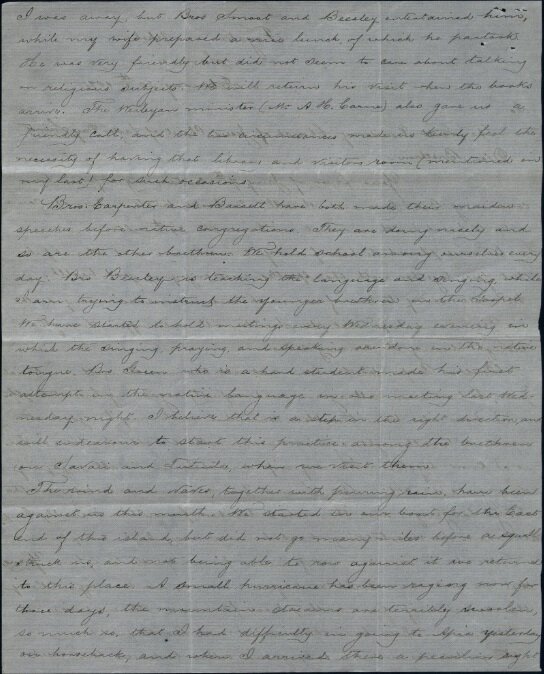 I was away, but Bros Smoot and Beesley entertained him,
while my wife prepared a nice lunch, of which he partook.
He was very friendly but did not seem to care about talking
on religious subjects. We will return his visit when the books
arrive. The Wesleyan minister (Mr A. H. Carne) also gave us a
friendly call, and the two circumstances made us keenly feel the
necessity of having that library and visitors room (mentioned in
my last) for such occasions.
Bros. Carpenter and Bassett have both made their maiden
speeches before native congregations. They are doing nicely and
so are the other brethren. We hold school among ourselves every
day. Bro Beesley is teaching the language and singing, while
I am trying to instruct the younger brethren in the Gospel.
We have started to hold meetings every Wednesday evening in
which the singing, praying, and speaking are done in the native
tongue. Bro. who is a hard student made his first
attempt in the native language in our meeting last Wed-
nesday night. I believe that is a step in the right direction, and
will endeavour to start this practice among the brethren
on Savaii and Tutuila, when we visit them.
The wind and waves, together with pouring rain, have been
against us this month. We started in our boat for the East
end of this island, but did not go many miles before a squall
struck us, and not being able to row against it we returned
to this place. A small hurricane has been raging now for
three days, the mountain streams are terribly swollen,
so much so, that I had difficulty in going to Apia yesterday
on horseback, and when I arrived there a peculiar sight